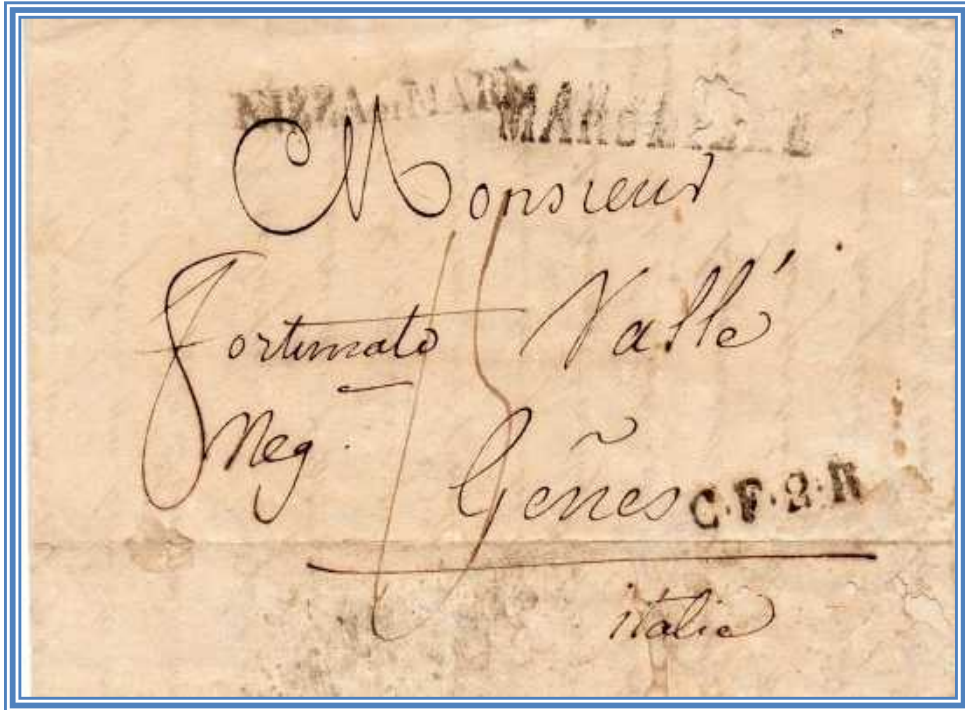 Monsieur
Fortunato Vallé
Neg. Gênes C.F.2.R
italie